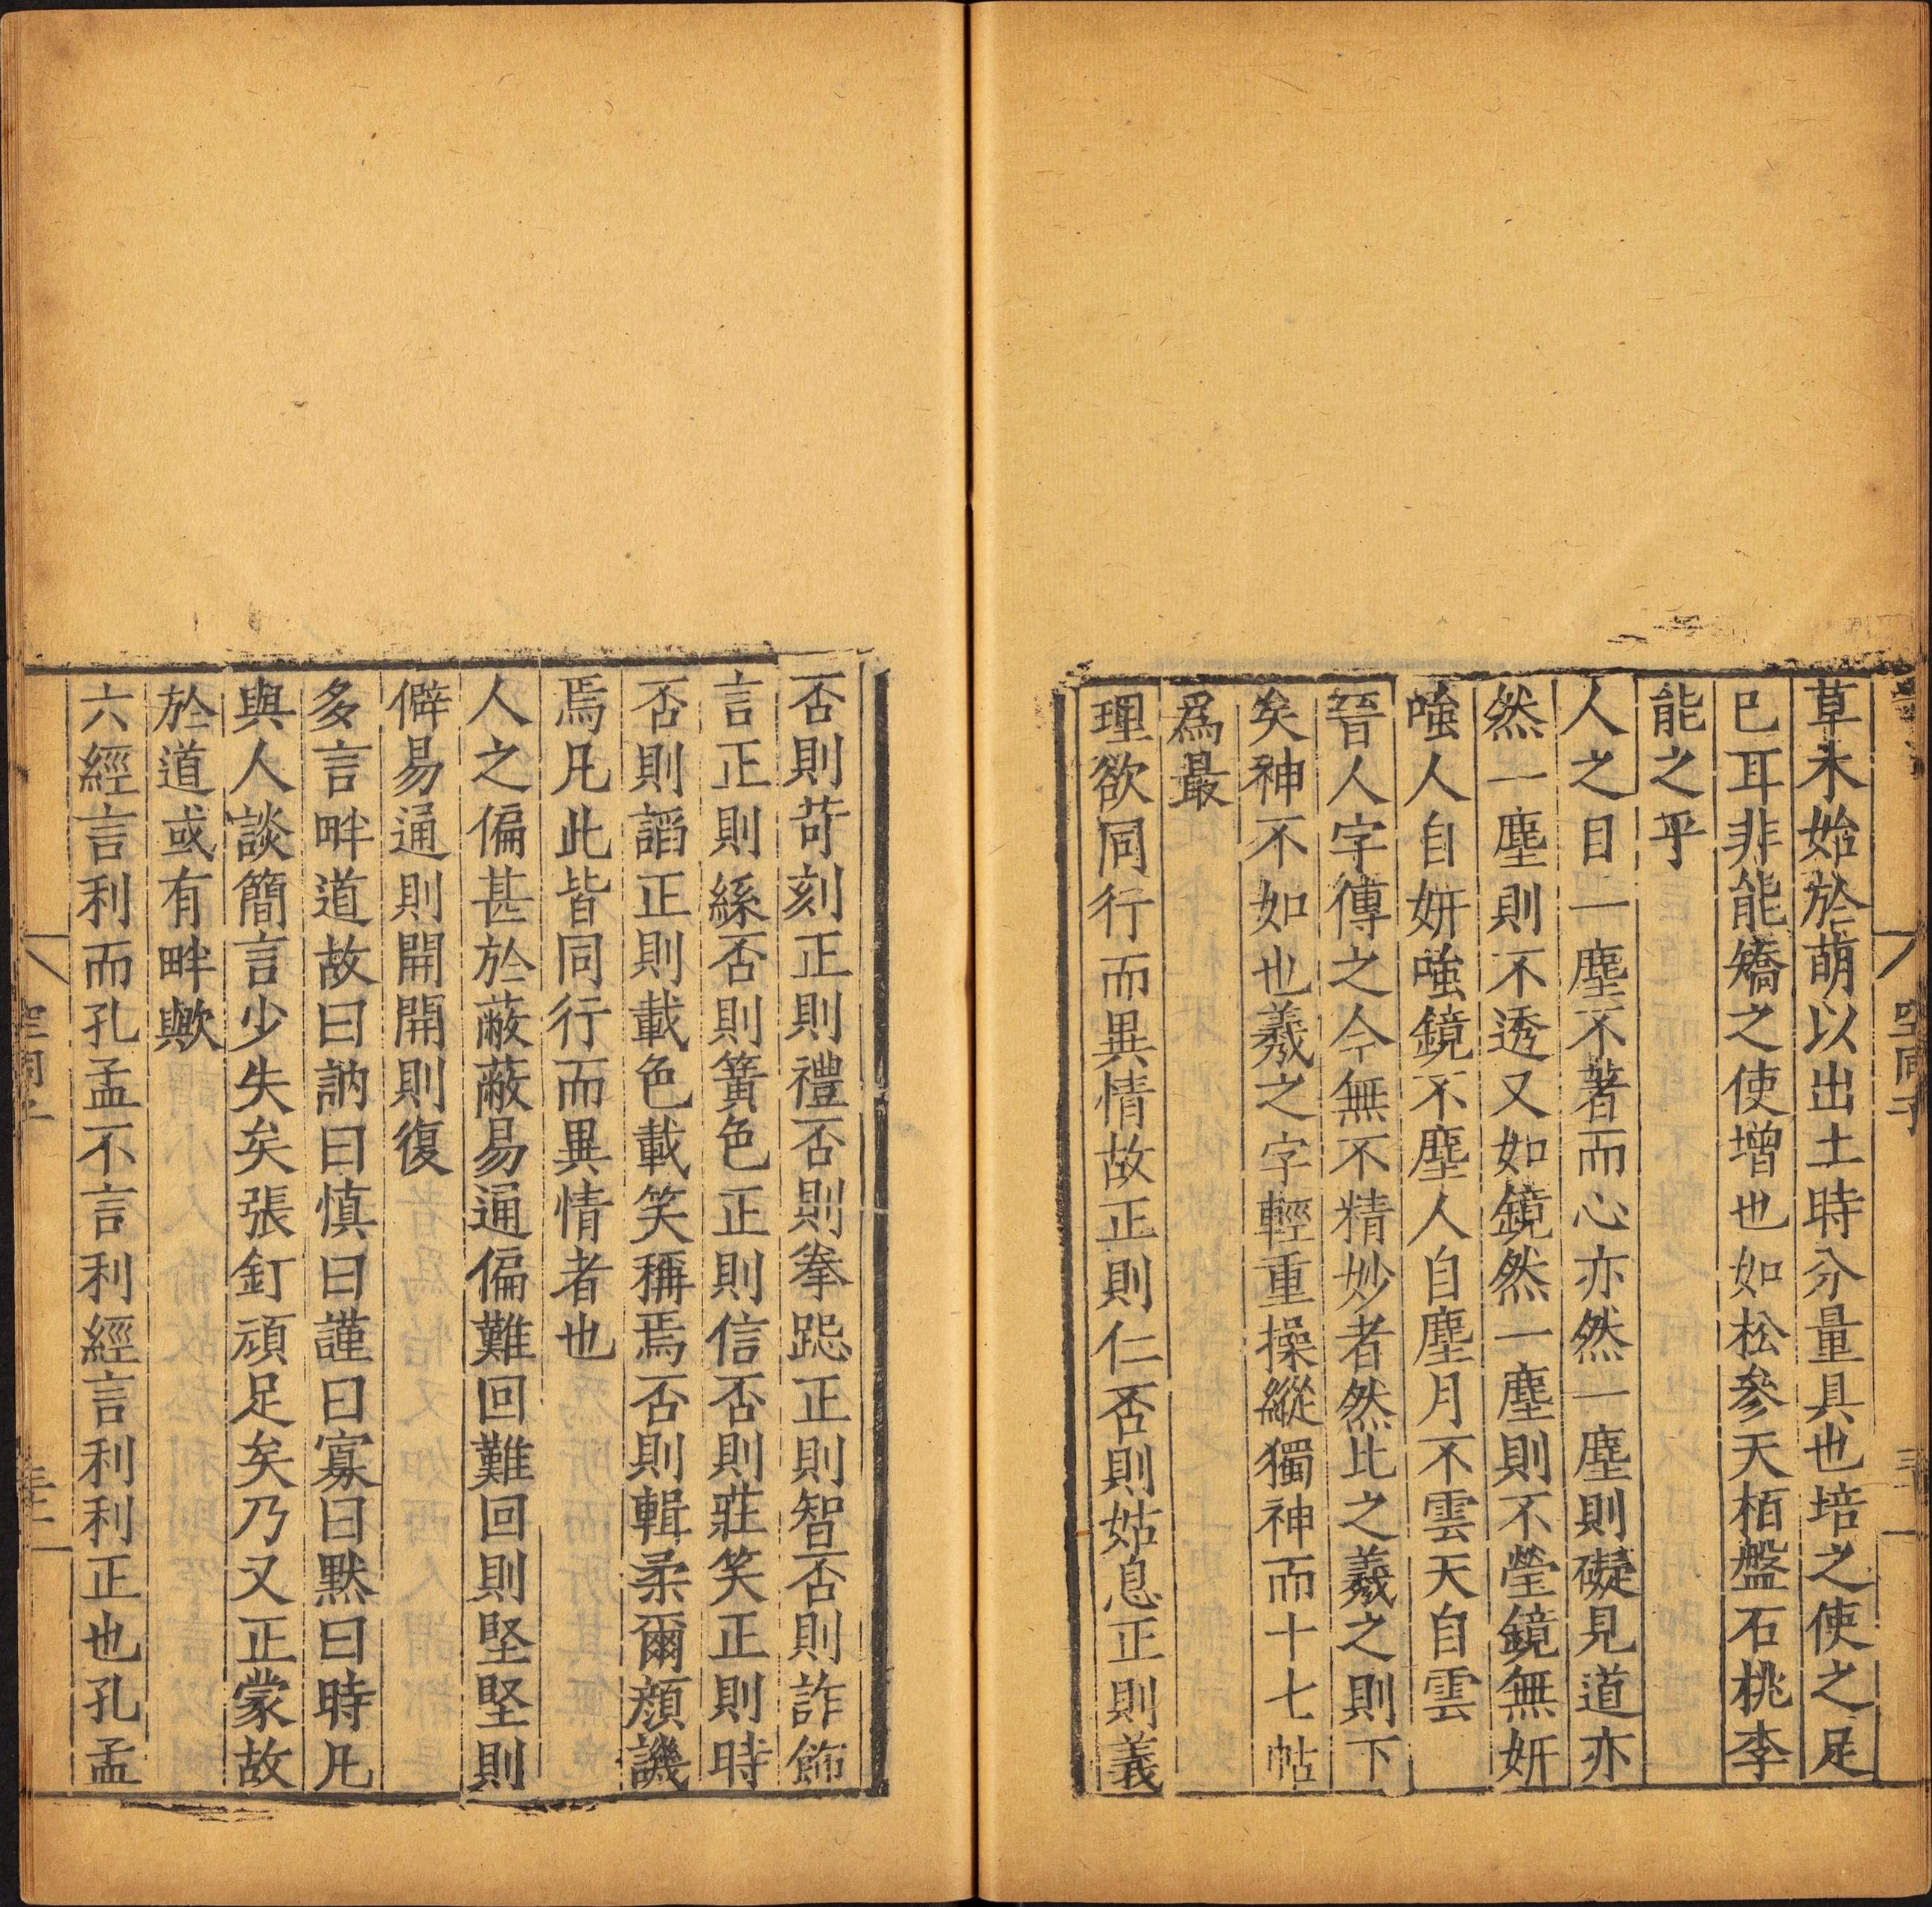 草木始於萌以出土時分量具也培之使之足
已耳非能矯之使增也如松參天栢盤石桃李
能之乎
人之目一塵不著而心亦然一塵則礙見道亦
然一塵則不透又如鏡然一塵則不瑩鏡無姸
媸人自姸媸鏡不塵人自塵月不雲天自雲
晉人字傳之今無不精妙者然比之羲之則下
矣神不如也羲之字輕重操縱獨神而十七帖
爲最
理欲同行而異情故正則仁否則姑息正則義
否則苛刻正則禮否則拳跽正則智否則詐飾
言正則絲否則簧色正則信否則莊笑正則時
否則謟正則載色載笑稱焉否則輯柔爾顏譏
焉凡此皆同行而異情者也
人之偏甚於蔽蔽易通偏難回難回則堅堅則
僻易通則開開則復
多言畔道故曰訥曰慎曰謹曰寡曰默曰時凡
與人談簡言少失矣張釘頑足矣乃又正蒙故
於道或有畔歟
六經言利而孔孟不言利經言利利正也孔孟